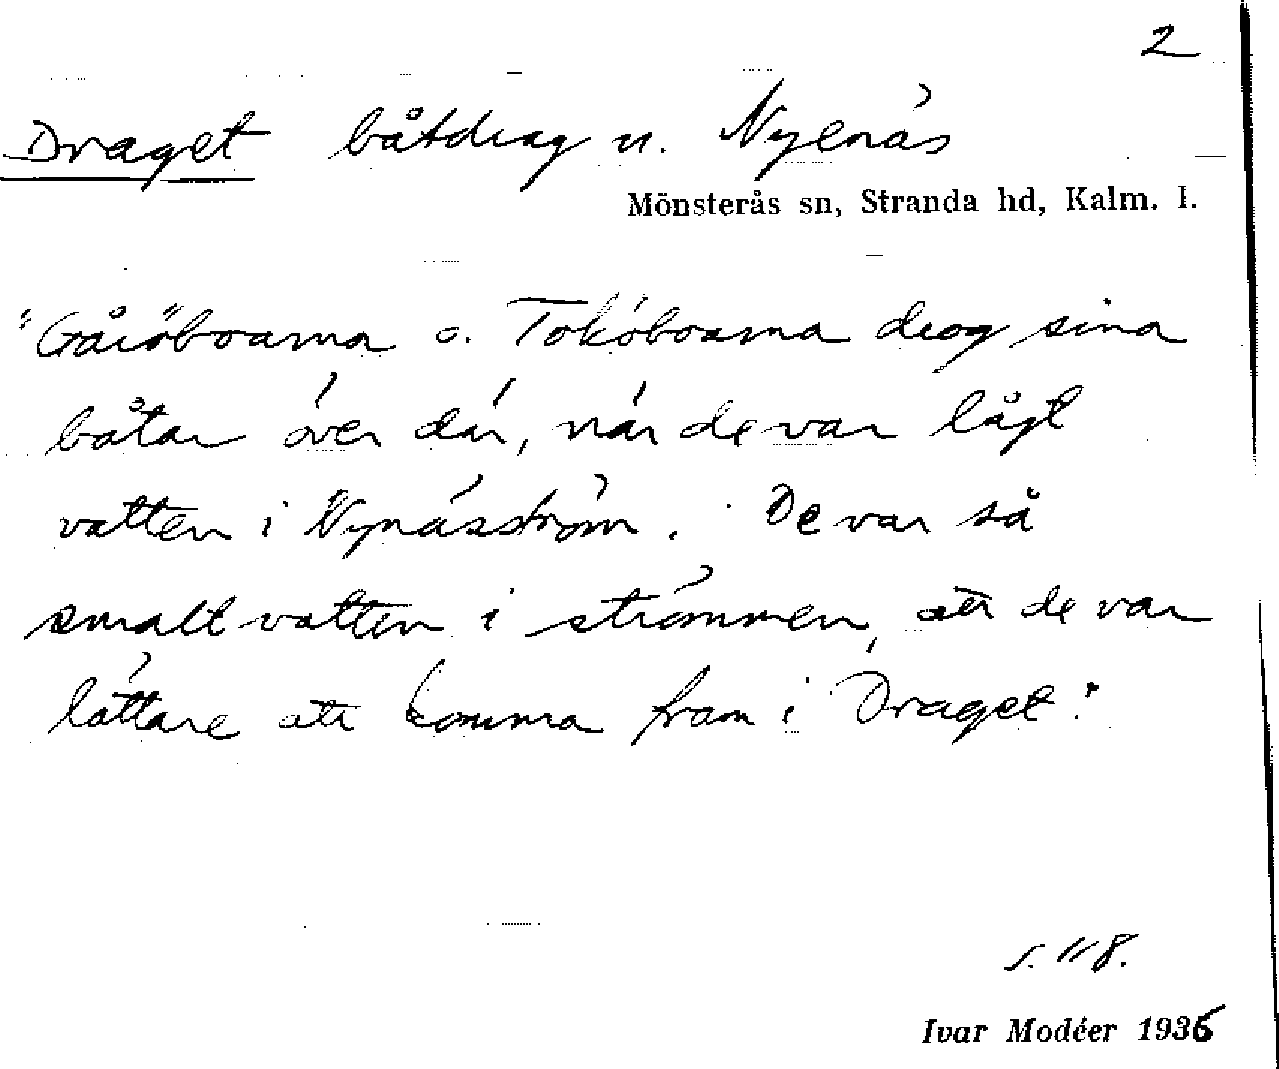 2
Draget båtdrag n. Nyenäs
Mönsterås sn, Stranda hd, Kalm. l.
"Gåsöboarna o. Toköboarna drog sina
båtar över där, när de var lågt
vatten i Nynäsström. De var så
smalt vatten i strömmen, att de var
lättare att komma fram i Draget."
s. 118.
Ivar Modéer 1936